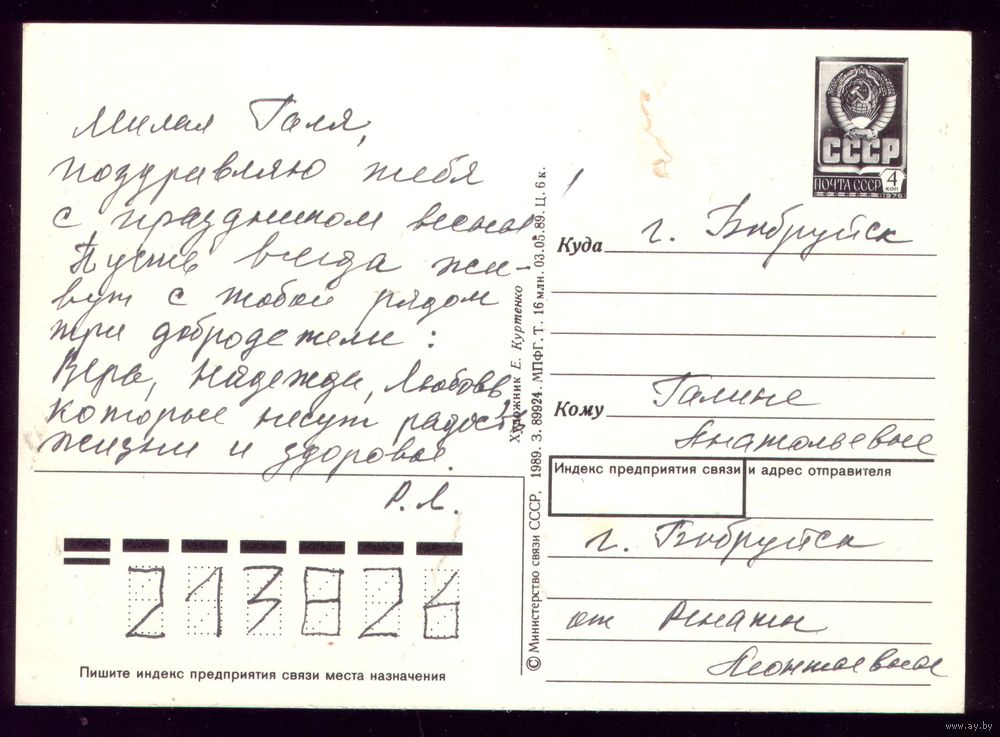 Милая Галя,
поздравляю тебя
с праздником весны!
Пусть всегда жи-
вут с тобой рядом
три добродетели:
Вера, Надежда, Любовь,
которые несут радость
жизни и здоровье.
Р. Л.
213826
Пишите индекс предприятия связи места назначения
Художник Е. Куртенко
© Министерство связи СССР, 1989. З. 89924. МПФГ. Т. 16 млн. 03.05.89. Ц. 6 к.
СССР
ПОЧТА СССР 4 КОП
1976
Куда г. Бобруйск
Кому Галине
Анатольевне
Индекс предприятия связи и адрес отправителя
г. Бобруйск
от Ренаты
Леонтьевны
www.ay.by